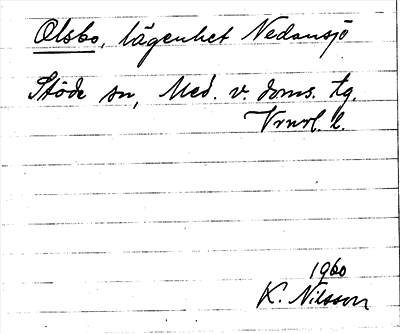 Olsbo, lägenhet Nedansjö
Stöde sn, Med. v doms. tg.
Vrnrl. l.
1960
K. Nilsson